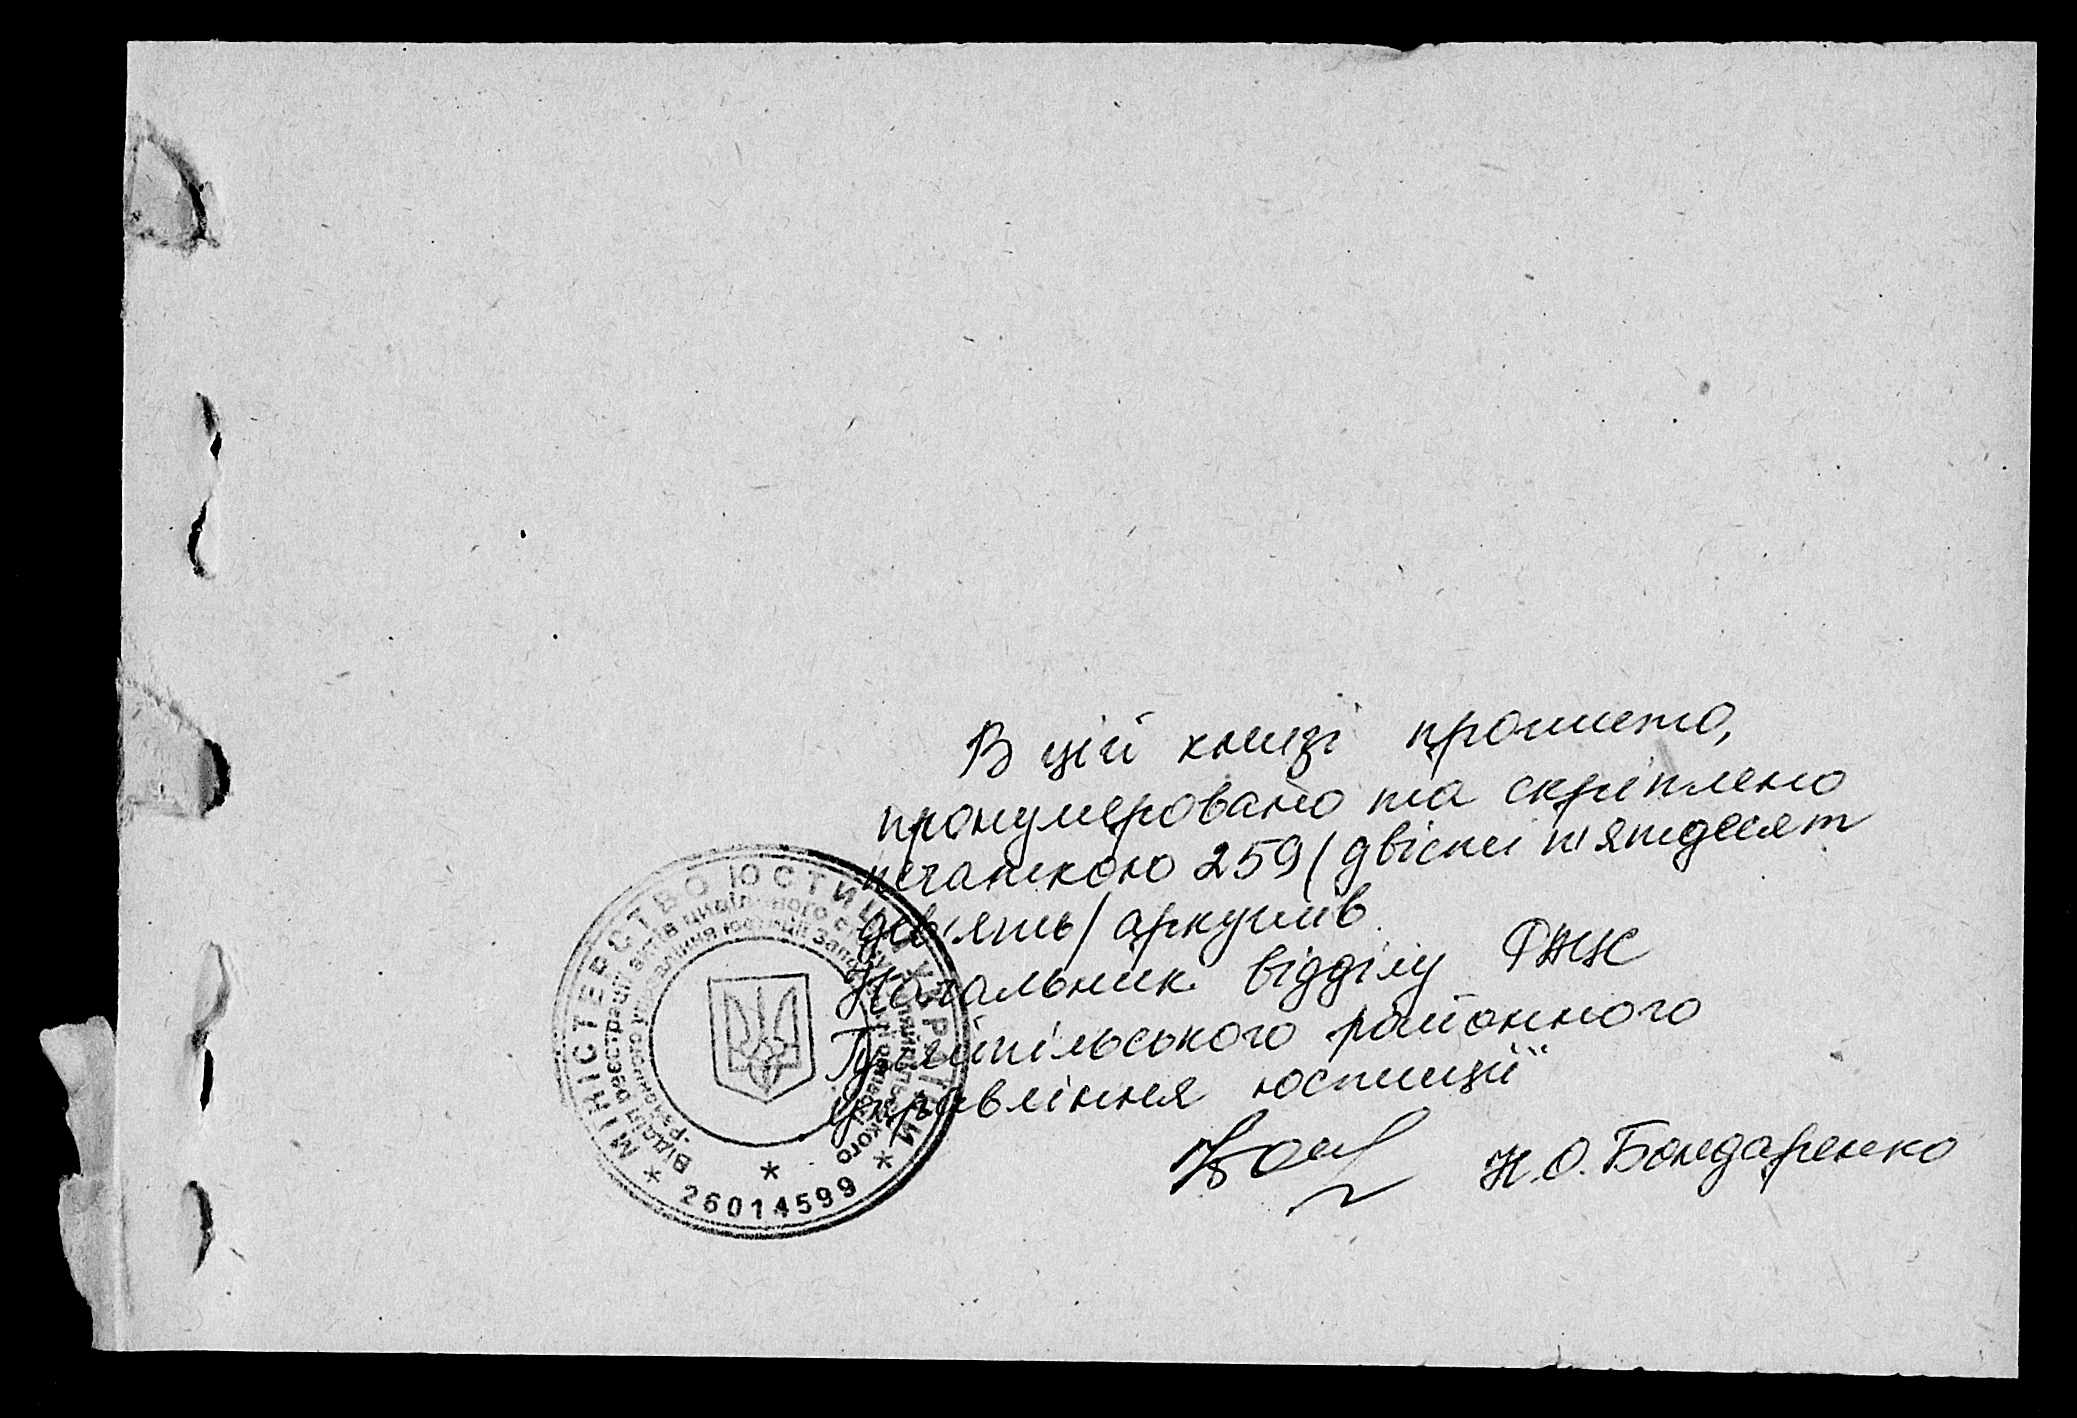 В цій книзі прошито,
пронумеровано та скріплено
печаткою 259 (двісті п'ятдесят
дев'ять) аркушів.
Начальник відділу РАЦС
Гуляйпільського районного
управління юстиції
Н.О. Бондаренко
МІНІСТЕРСТВО ЮСТИЦІЇ УКРАЇНИ
Відділ реєстрації актів цивільного стану Гуляйпільського
районного управління юстиції Запорізької області
* 26014599 *
*